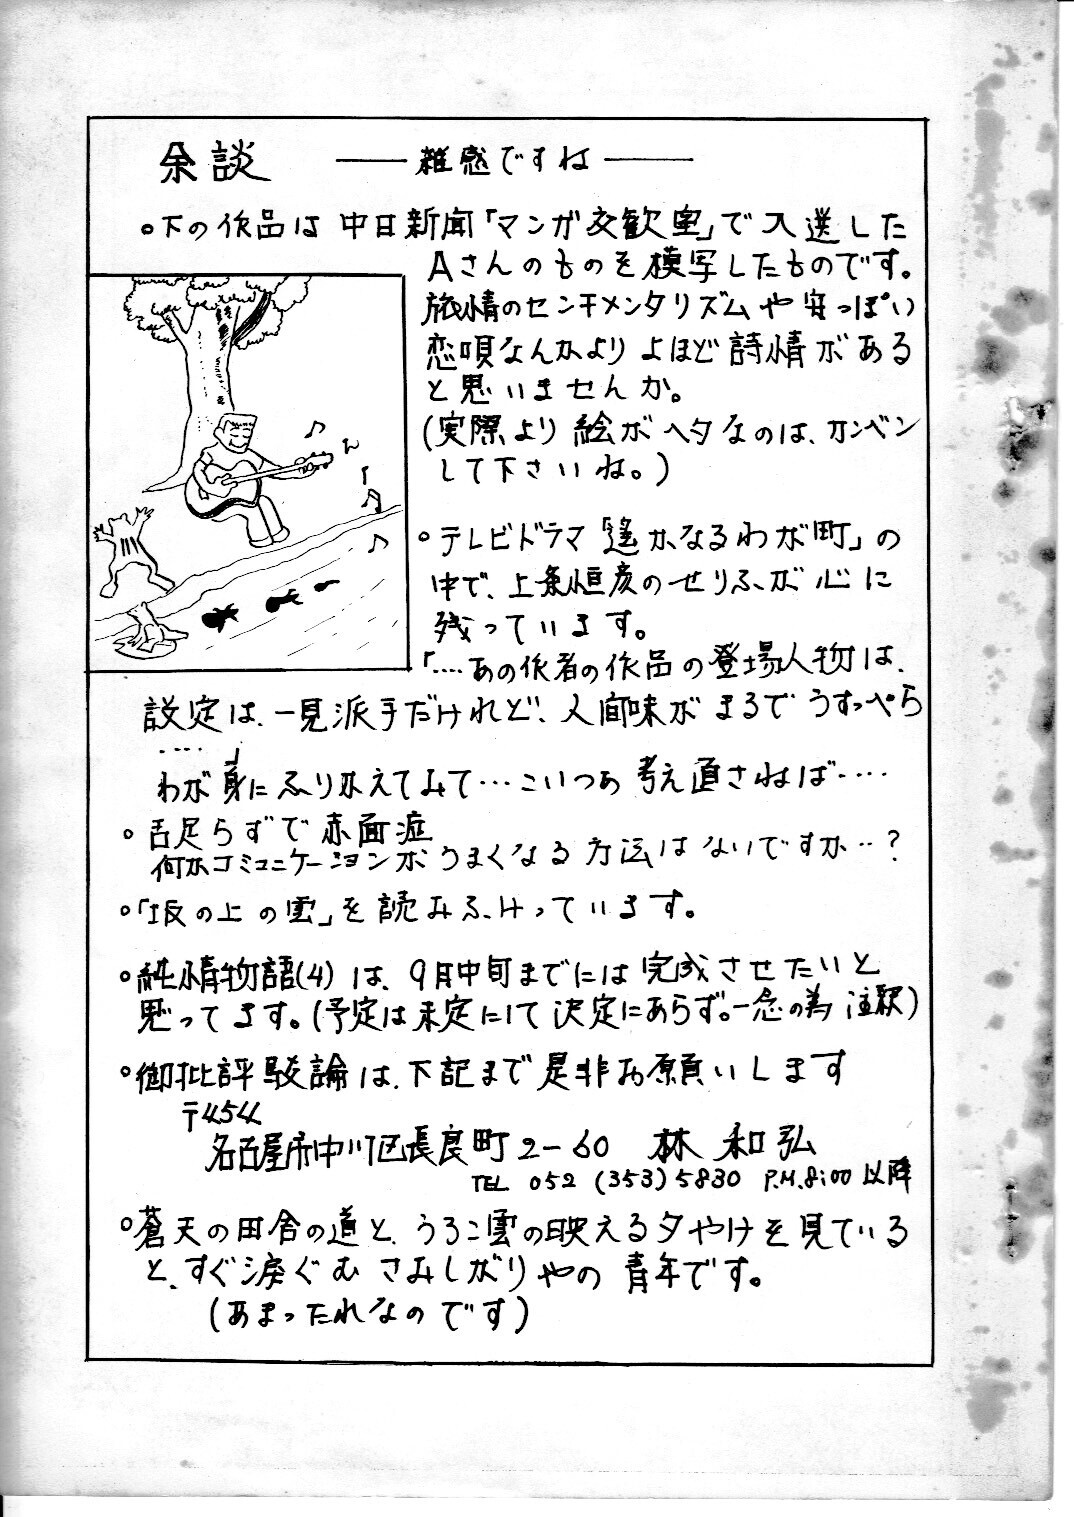 余談 ―― 雑感ですね ――
○下の作品は中日新聞「マンガ交歓室」で入選した
Aさんのものを模写したものです。
旅情のセンチメンタリズムや安っぽい
恋唄なんかよりよほど詩情がある
と思いませんか。
(実際より絵がヘタなのは、カンベン
して下さいね。)
○テレビドラマ「遙かなるわが町」の
中で、上条恒彦のせりふが心に
残っています。
「‥‥あの作者の作品の登場人物は、
設定は、一見派手だけれど、人間味がまるでうすっぺら
‥‥」
わが身にふりかえてみて…こいつあ考え直さねば‥‥
○舌足らずで赤面症
何かコミュニケーションがうまくなる方法はないですか‥?
○「坂の上の雲」を読みふけっています。
○純情物語(4)は、9月中旬までには完成させたいと
思ってます。(予定は未定にして決定にあらず。一念の為 注釈)
○御批評駁論は、下記まで是非お願いします
〒454
名古屋市中川区長良町2-60 林 和弘
TEL 052 (353) 5830 P.M.8:00以降
○蒼天の田舎の道と、うろこ雲の映える夕やけを見ている
と、すぐ涙ぐむさみしがりやの青年です。
(あまったれなのです)